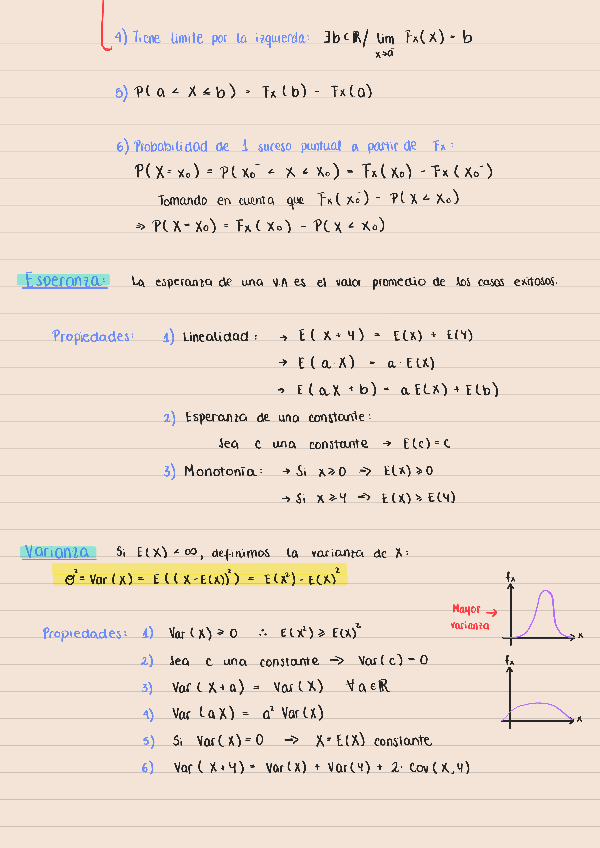 4) Tiene limite por la izquierda: ∃b∈ℝ/ lim Fx(x) = b
x→a⁻
5) P(a < X ≤ b) = Fx(b) - Fx(a)
6) Probabilidad de 1 suceso puntual a partir de Fx:
P(X=x₀) = P(x₀⁻ < X < x₀) = Fx(x₀) - Fx(x₀⁻)
Tomando en cuenta que Fx(x₀⁻) = P(X < x₀)
⇒ P(X=x₀) = Fx(x₀) - P(X < x₀)
Esperanza: La esperanza de una V.A es el valor promedio de los casos exitosos.
Propiedades: 1) Linealidad: → E(X+Y) = E(X) + E(Y)
→ E(a·X) = a·E(X)
→ E(aX + b) = aE(X) + E(b)
2) Esperanza de una constante:
Sea c una constante → E(c) = c
3) Monotonía: → Si X≥0 ⇒ E(X)≥0
→ Si X≥Y ⇒ E(X)≥E(Y)
Varianza Si E(X) < ∞, definimos la varianza de X:
σ² = Var(X) = E((X-E(X))²) = E(X²) - E(X)²
fx
Mayor → varianza
x
Propiedades: 1) Var(X) ≥ 0 ∴ E(X²) ≥ E(X)²
2) Sea c una constante → Var(c) = 0
fx
3) Var(X+a) = Var(X) ∀a∈ℝ
4) Var(aX) = a² Var(X)
x
5) Si Var(X)=0 → X=E(X) constante
6) Var(X+Y) = Var(X) + Var(Y) + 2·Cov(X,Y)